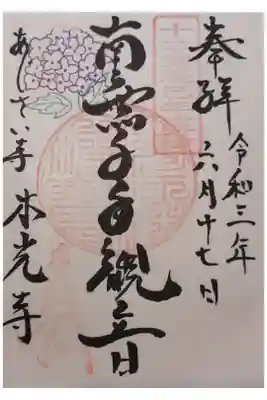 奉拝
令和三年
六月十七日
南無千手観音
あじさい寺 本光寺